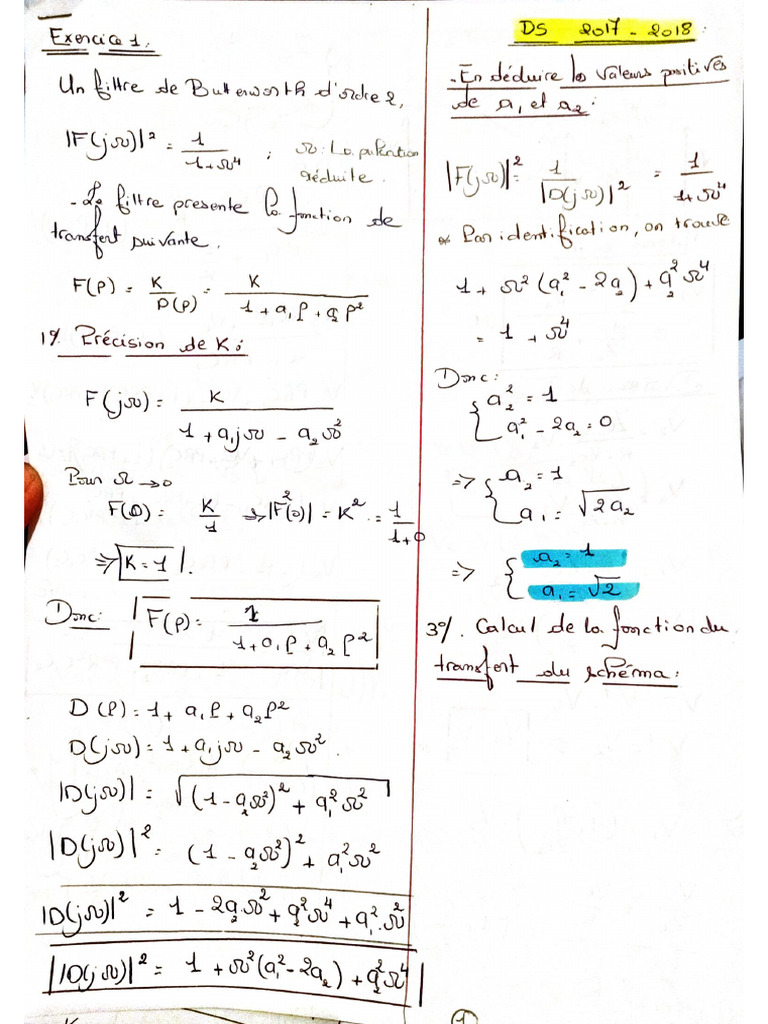 Exercice 1:
Un filtre de Butterworth d'ordre 2,
|F(jΩ)|² = 1/(1+Ω⁴) ; Ω: la pulsation
réduite.
- Le filtre presente la fonction de
transfert suivante.
F(P) = K/D(P) = K/(1 + a₁P + a₂P²)
1%. Précision de K:
F(jΩ) = K/(1 + a₁jΩ - a₂Ω²)
Pour Ω → 0
F(0) = K/1 → |F(0)|² = K² = 1/(1+0)
⇒ K = 1.
Donc: F(P) = 1/(1 + a₁P + a₂P²)
D(P) = 1 + a₁P + a₂P²
D(jΩ) = 1 + a₁jΩ - a₂Ω².
|D(jΩ)| = √((1 - a₂Ω²)² + a₁²Ω²)
|D(jΩ)|² = (1 - a₂Ω²)² + a₁²Ω²
|D(jΩ)|² = 1 - 2a₂Ω² + a₂²Ω⁴ + a₁².Ω²
|D(jΩ)|² = 1 + Ω²(a₁² - 2a₂) + a₂²Ω⁴
DS 2017 - 2018:
- En déduire les valeurs positives
de a₁ et a₂:
|F(jΩ)|² = 1/|D(jΩ)|² = 1/(1+Ω⁴)
Par identification, on trouve
1 + Ω²(a₁² - 2a₂) + a₂²Ω⁴
= 1 + Ω⁴
Donc:
{ a₂² = 1
a₁² - 2a₂ = 0
⇒ { a₂ = 1
a₁ = √(2a₂)
⇒ { a₂ = 1
a₁ = √2
3%. Calcul de la fonction du
transfert du schéma:
1